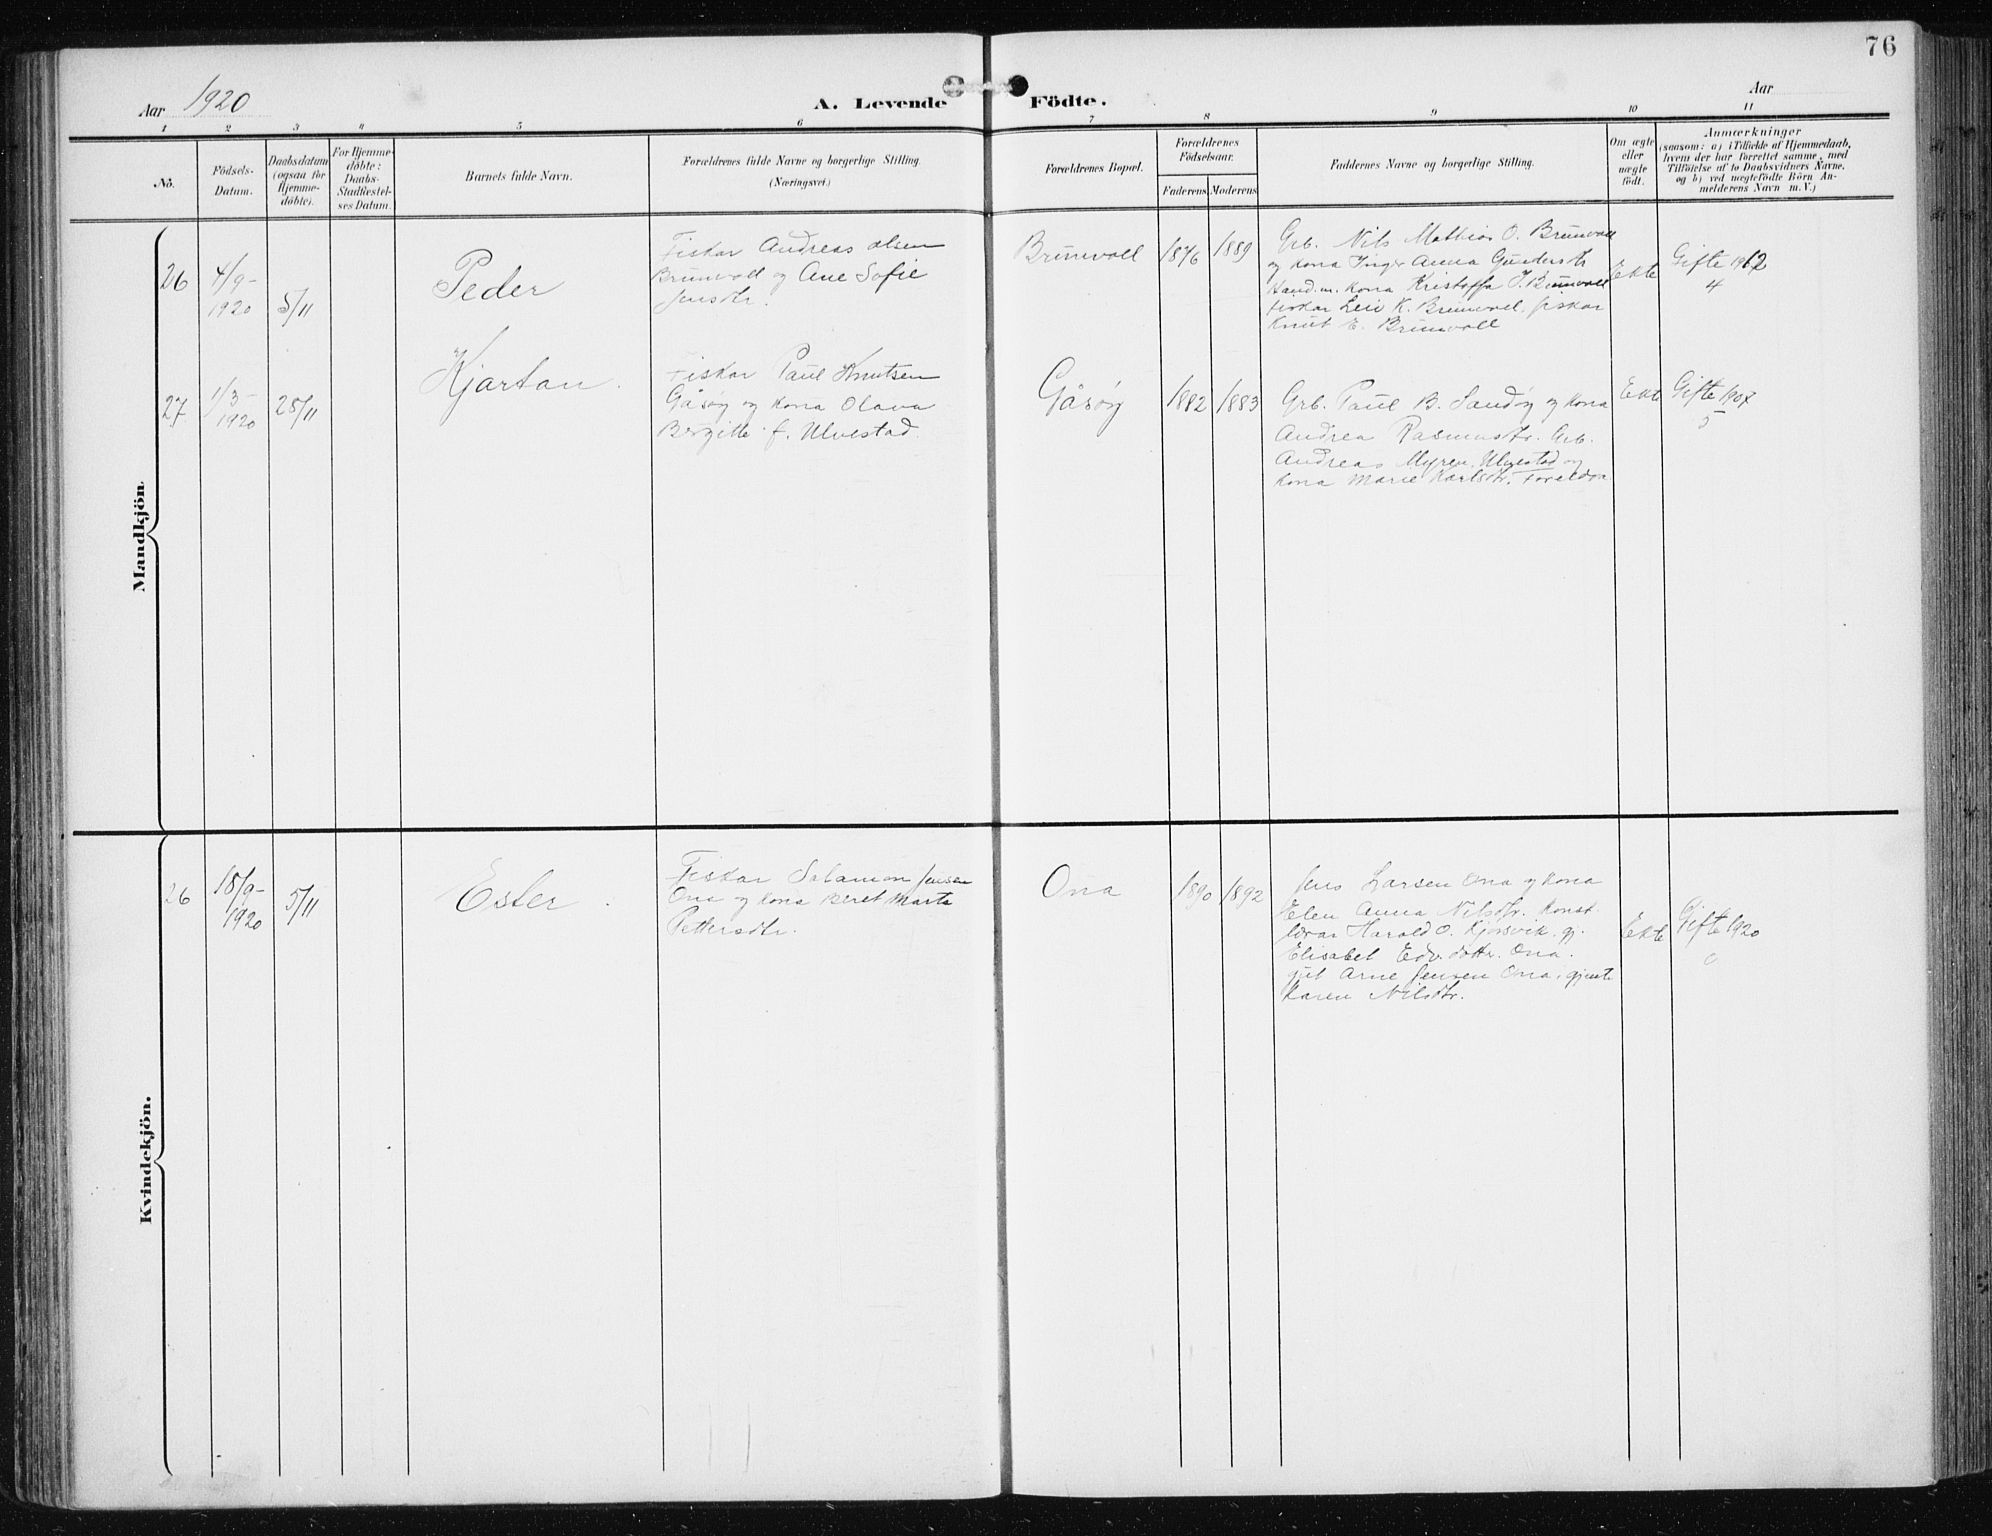 76
Aar 1920
A. Levende Födte.
Aar
1 2 3 4 5 6 7 8 9 10 11
No.
Födsels-
Datum.
Daabsdatum
(ogsaa for
Hjemme-
döbte).
For Hjemme-
döbte:
Daabs-
Stadfestel-
ses Datum.
Barnets fulde Navn.
Forældrenes fulde Navne og borgerlige Stilling.
(Næringsvei.)
Forældrenes Bopæl.
Forældrenes
Födselsaar.
Faderens Moderens
Faddernes Navne og borgerlige Stilling.
Om ægte
eller
uægte
födt.
Anmærkninger
(saasom: a) i Tilfælde af Hjemmedaab,
hvem der har forrettet samme, med
Tilföielse af to Daabsvidners Navne.
og b) ved uægtefödte Börn An-
melderens Navn m. V.)
Mandkjön
26
4/9-
1920
5/11
Peder
Fiskar Andreas Olsen
Brunvoll og Ane Sofie
Jensdtr.
Brunvoll
1876
1889
Grb. Nils Mathias O. Brunvoll
og kona Inger Anna Gundersdtr
Hand.m. kona Kristoffa J. Brunvoll
fiskar Leiv K. Brunvoll, fiskar
Knut E. Brunvoll
Ekte
Gifte 1912
4
27
1/3-
1920
28/11
Kjartan.
Fiskar Paul Knutsen
Gåsöy og kona Olava
Bergitte f. Ulvestad.
Gåsöy
1882
1883
Grb. Paul B. Sandöy og kona
Andrea Rasmusdtr. Grb.
Andreas Myren, Ulvestad og
kona Marie Karlsdtr. Foreldra
Ekte
Gifte 1907
5
Kvindekjön.
26
18/9-
1920
5/11
Ester.
Fiskar Salamon Jensen
Ona og kona Beret Marta
Pettersdtr.
Ona
1890
1892
Jens Larsen Ona og kona
Elen Anna Nilsdtr. Konst.
lærar Harald O. Kjörsvik, gj.
Elisabet Edv. dotter. Ona.
gut Arne Jensen Ona, gjente
Karen Nilsdtr.
Ekte
Gifte 1920
0